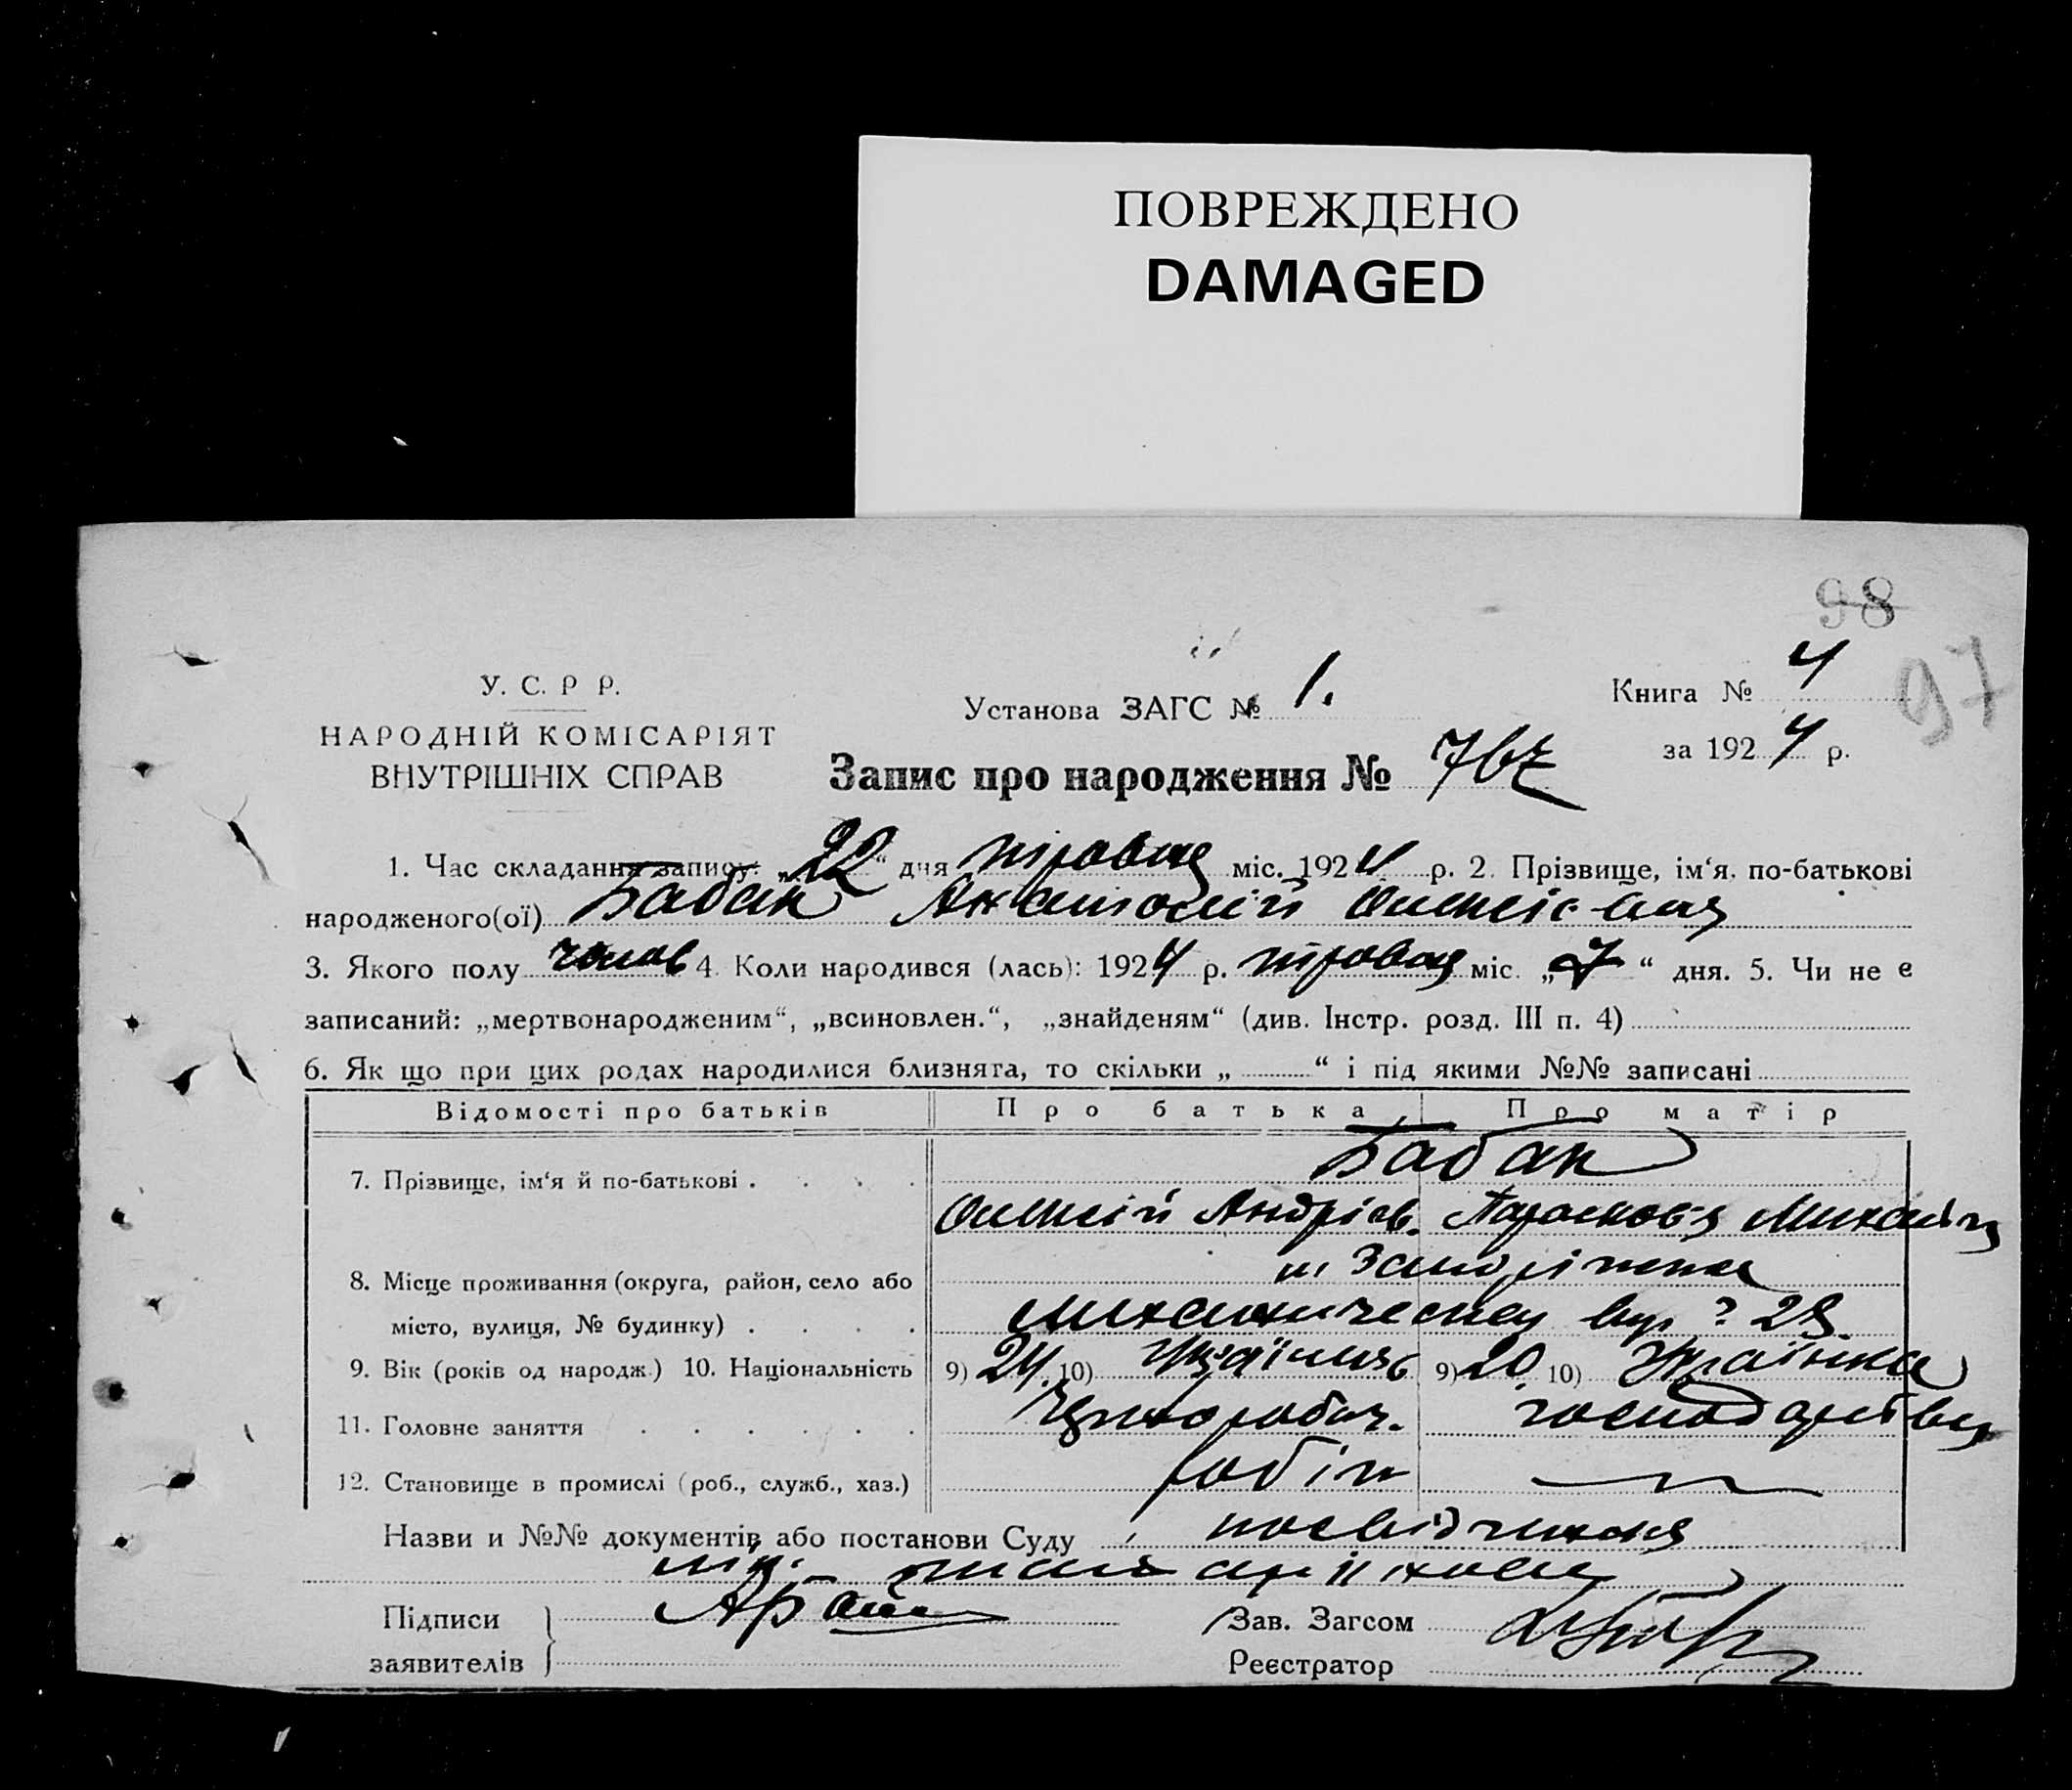 ПОВРЕЖДЕНО
DAMAGED
98
97
У. С. Р Р.
НАРОДНІЙ КОМІСАРІЯТ
ВНУТРІШНІХ СПРАВ
Установа ЗАГС № 1.
Запис про народження №
Книга № 4
за 1924 р.
1. Час складання запису: „22“ дня травня міс. 1924 р. 2. Прізвище, ім‘я, по-батькові
народженого(ої) Бабак Анатолій Олексієвич
3. Якого полу чолов 4. Коли народився (лась): 1924 р. травня міс. „7“ дня. 5. Чи не є
записаний: „мертвонародженим“, „всиновлен.“, „знайденям“ (див. Інстр. розд. III п. 4)
6. Як що при цих родах народилися близняга, то скільки „ “ і під якими №№ записані
Відомості про батьків Про батька Про матір
7. Прізвище, ім‘я й по-батькові . . . . Бабак
Олексій Андрієв. Парасков‘я Михайл
8. Місце проживання (округа, район, село або м Запоріжжя
місто, вулиця, № будинку) . . . . вул 28.
9. Вік (років од народж.) 10. Національність 9) 24. 10) Українець 9) 20. 10) Українка
11. Головне заняття . . . . . . Чорнороboч. господарство
12. Становище в промислі (роб., служб., хаз.) робітн
Назви и №№ документів або постанови Суду посвідчення
Підписи
заявителів
Зав. Загсом
Реєстратор